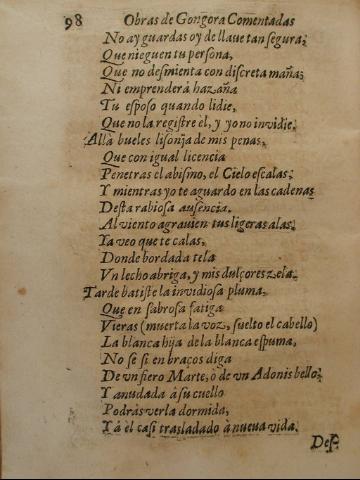 98 Obras de Gongora Comentadas
No ay guardas oy de llaue tan segura,
Que nieguen tu persona,
Que no desmienta con discreta maña;
Ni emprenderà hazaña
Tu esposo quando lidie,
Que no la registre èl, y yo no invidie.
Allà bueles lisonja de mis penas,
Que con igual licencia
Penetras el abismo, el Cielo escalas;
Y mientras yo te aguardo en las cadenas
Desta rabiosa ausencia.
Al viento agravien tus ligeras alas.
Ya veo que te calas,
Donde bordada tela
Vn lecho abriga, y mis dulçores zela.
Tarde batiste la invidiosa pluma,
Que en sabrosa fatiga
Vieras (muerta la voz, suelto el cabello)
La blanca hija de la blanca espuma,
No se si en braços diga
De vn fiero Marte, ò de vn Adonis bello;
Y anudada à su cuello
Podràs verla dormida,
Y à èl casi trasladado à nueva vida.
Des-